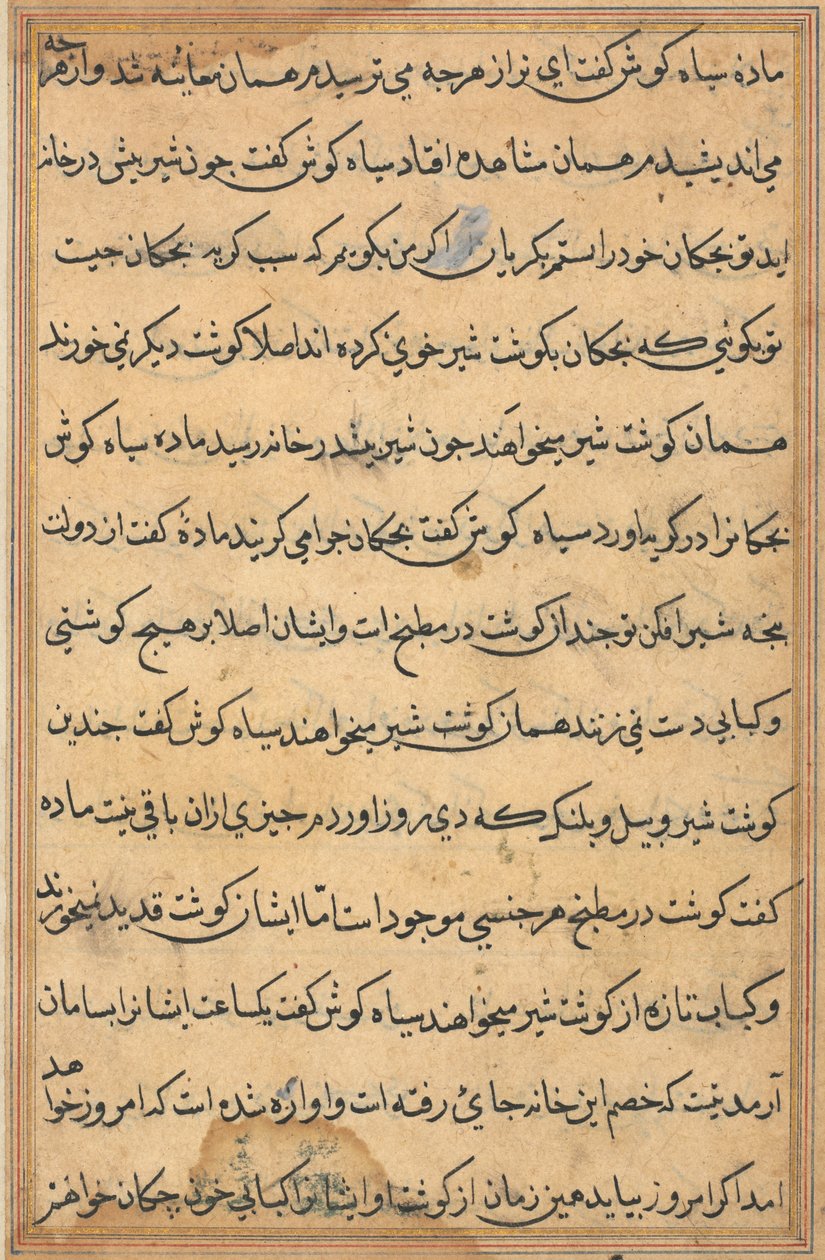 مادۀ سیاه کوش کفت ای نر از هرجه می ترسیدم همان معاینه شد واز هرجه
می اندیشیدم همان مشاهده افتاد سیاه کوش کفت جون شیر بیش در خانه
اید تو بجکان خود را ستم بکریان اکر من بکویم که سبب کریه بجکان جیست
تو بکوئی که بجکان بکوشت شیر خوی کرده اند اصلا کوشت دیکر نمی خورند
همان کوشت شیر میخواهند جون شیر بیشدر خانه رسید ماده سیاه کوش
بجکانرا در کریه اورد سیاه کوش کفت بجکان جرا می کریند مادۀ کفت از دولت
بنجه شیر افکن تو جنداز کوشت در مطبخ است وایشان اصلا بر هیج کوشتی
وکبابی دست نمی زنند همان کوشت شیر میخواهند سیاه کوش کفت جندین
کوشت شیر وبیل وبلنک که دی روز اوردم جیزی ازان باقی نیست ماده
کفت کوشت در مطبخ هر جنسی موجود است امّا ایشان کوشت قدید نمیخورند
وکباب تازه از کوشت شیر میخواهند سیاه کوش کفت یکساعت ایشانرا بسامان
آر مدتیست که خصم این خانه جایٔ رفته است واواره شده است که امروز خواهد
امد اکر امروز بیاید همین زمان از کوشت او ایشانرا کبابی خون چکان خواهم